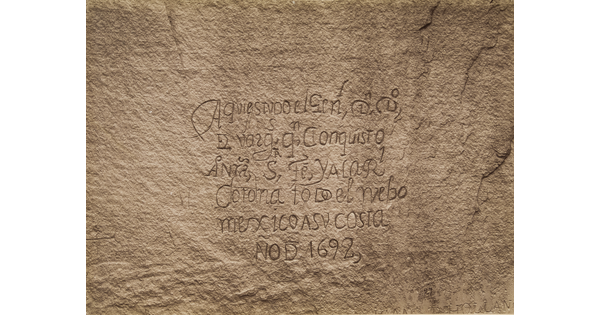 Aqui estubo el Genl, Dn, Do,
De Vargs, qn Conquisto
A Nra, S, Fe, Y A la Rl
Corona todo el nuebo
mexico A su costa
ANO D 1692,